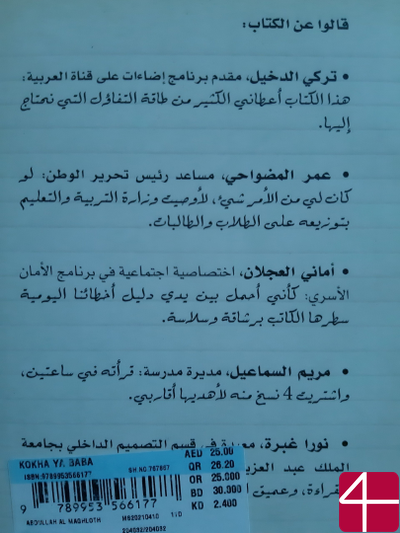 قالوا عن الكتاب:
• تركي الدخيل، مقدم برنامج إضاءات على قناة العربية:
هذا الكتاب أعطاني الكثير من طاقة التفاؤل التي نحتاج
إليها.
• عمر المضواحي، مساعد رئيس تحرير الوطن: لو
كان لي من الأمر شيء، لأوصيت وزارة التربية والتعليم
بتوزيعه على الطلاب والطالبات.
• أماني العجلان، اختصاصية اجتماعية في برنامج الأمان
الأسري: كأني أحمل بين يدي دليل أخطائنا اليومية
سطرها الكاتب برشاقة وسلاسة.
• مريم السماعيل، مديرة مدرسة: قرأته في ساعتين،
واشتريت 4 نسخ منه لأهديها أقاربي.
• نورا غبرة، معيدة في قسم التصميم الداخلي بجامعة
الملك عبد العزيز
وعميق
KOKHA YA BABA
ISBN:9789953566177
SH NO.767807
AED 25.00
QR 26.20
OR 25.000
BD 30.000
KD 2.400
9 789953 566177
ABDULLAH AL MAGHLOTH
MS20210410
204032/204032
4